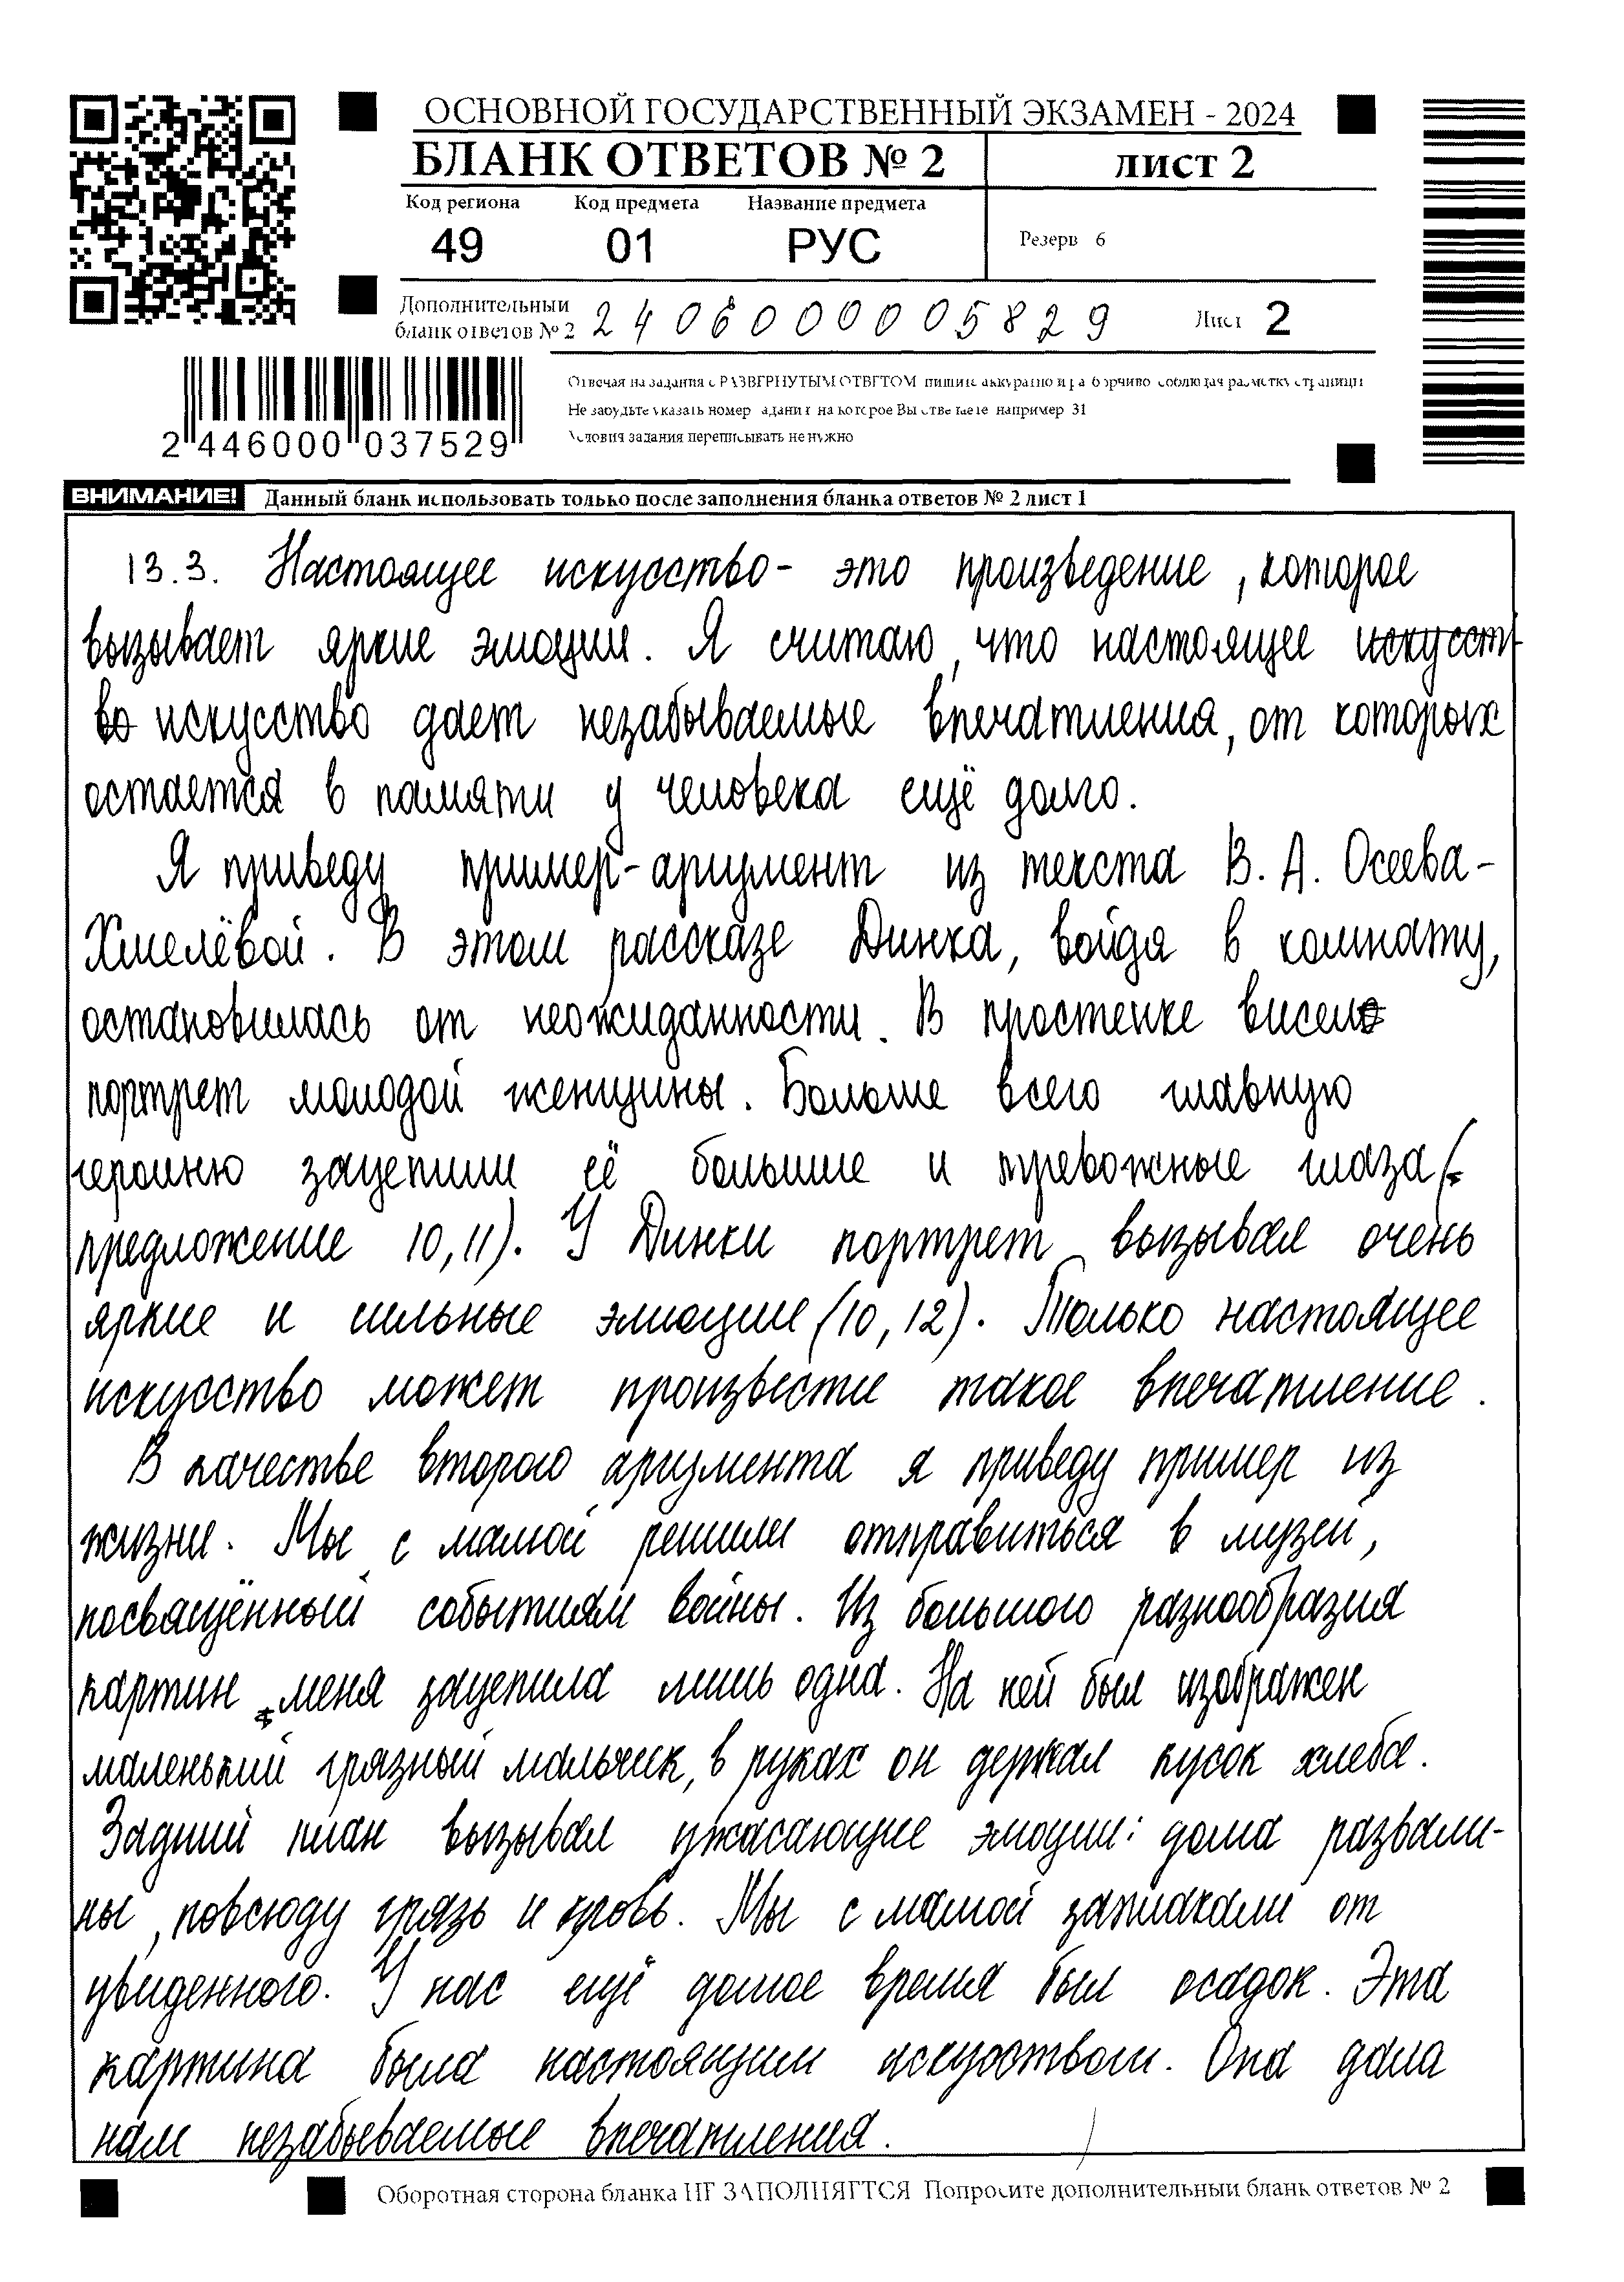 ОСНОВНОЙ ГОСУДАРСТВЕННЫЙ ЭКЗАМЕН - 2024
БЛАНК ОТВЕТОВ № 2
ЛИСТ 2
Код региона Код предмета Название предмета
49 01 РУС
Резерв 6
Дополнительный
бланк ответов № 2
2406000005829
Лист 2
Отвечая на задания с РАЗВЕРНУТЫМ ОТВЕТОМ пишите аккуратно и разборчиво соблюдая разметку страницы
Не забудьте указать номер задания на которое Вы отвечаете например 31
Условия задания переписывать не нужно
2 446000 037529
ВНИМАНИЕ! Данный бланк использовать только после заполнения бланка ответов № 2 лист 1
13.3. Настоящее искусство- это произведение, которое
вызывает яркие эмоции. Я считаю, что настоящее искусст
во искусство дает незабываемые впечатления, от которых
остается в памяти у человека ещё долго.
Я приведу пример-аргумент из текста В. А. Осеева-
Хмелёвой. В этом рассказе Динка, войдя в комнату,
остановилась от неожиданности. В простенке висело
портрет молодой женщины. Больше всего главную
героиню зацепили её большие и тревожные глаза (
предложение 10,11). У Динки портрет вызывал очень
яркие и сильные эмоции (10, 12). Только настоящее
искусство может произвести такое впечатление.
В качестве второго аргумента я приведу пример из
жизни. Мы с мамой решили отправиться в музей,
посвящённый событиям войны. Из большого разнообразия
картин меня зацепила лишь одна. На ней был изображен
маленький грязный мальчик, в руках он держал кусок хлеба.
Задний план вызывал ужасающие эмоции: дома развали-
ны, повсюду грязь и кровь. Мы с мамой заплакали от
увиденного. У нас ещё долгое время был осадок. Эта
картина была настоящим искусством. Она дала
нам незабываемые впечатления.
Оборотная сторона бланка НЕ ЗАПОЛНЯЕТСЯ Попросите дополнительный бланк ответов № 2